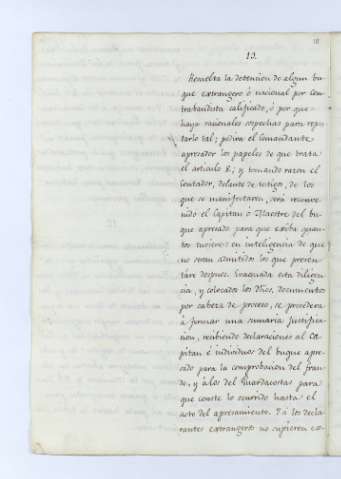 13.
Resuelta la detencion de algun bu-
que extrangero ó nacional por con-
trabandista calificado, ó por que
haya racionales sospechas para repu-
tarlo tal; pedirá el Comandante
apresador los papeles de que trata
el articulo 8; y tomando razon el
Contador, delante de testigo, de los
que se manifestaren, será reconve-
nido el Capitan ó Maestre del bu-
que apresado para que exiba quan-
tos tuviere; en inteligencia de que
no seran admitidos los que presen-
táre despues. Evaquada esta diligen-
cia, y colocados los documentos
por cabeza de proceso, se procederá
á formar una sumaria justifica-
cion, recibiendo declaraciones al Ca-
pitan é individuos del buque apre-
sado para la comprobacion del frau-
de, y á los del Guardacostas para
que conste lo ocurrido hasta el
acto del apresamiento. Si los decla-
rantes extrangeros no supieren